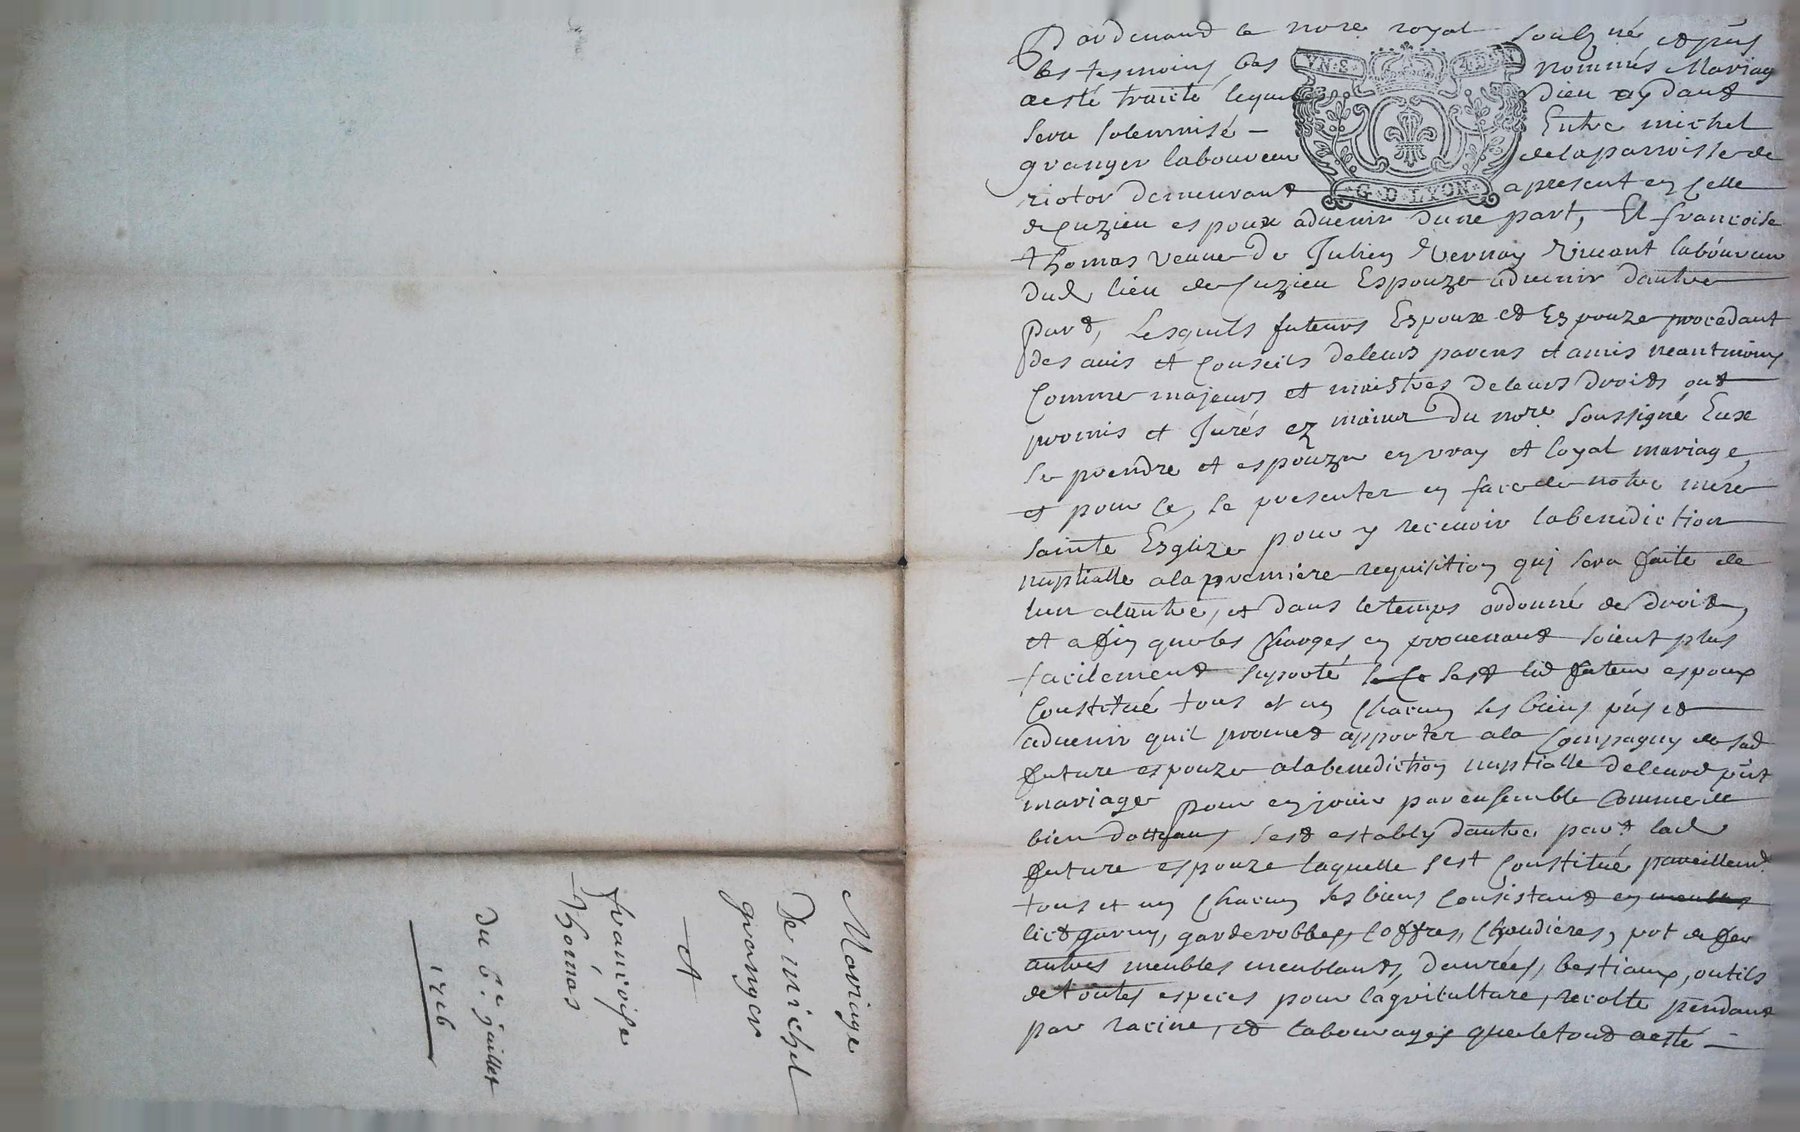 Mariage
De michel
granger
Et
francoise
Thomas
du 6e juillet
1726
Pardevand le nore royal soubz né et pns
les tesmoins bas nommés Mariag
a esté traicté lequel dieu aydant
sera solemnisé – Entre michel
granger laboureur de la parroisse de
riotor demeurant apresent en celle
de Cuzieu espoux aduenir dune part, Et francoise
thomas veuue de Julien Vernay viuant laboureur
dud lieu de Cuzieu Espouze aduenir dautre
part, Lesquels futeurs Espoux et Espouze procedant
des auis et Conseils de leurs parens et amis neantmoins
Comme majeurs et maistres de leurs droits ont
promis et Jurés ez mains du nore soussigné Eux
se prendre et espouzer en vray et loyal mariage,
et pour ce, se presenter en face de notre mere
sainte Esglize pour y receuoir la benediction
nuptialle a la premiere requisition qui sera faite de
lun a lautre, et dans le temps ordonné de droit,
et afin que les Charges en prouenant soient plus
facilement suporté sest led futeur espoux
Constitué tous et un Chacun ses biens pns et
aduenir quil promet apporter a la Compagny de sad
future espouze a la benediction nuptialle de leurd pnt
mariage pour en jouir par ensemble Comme de
bien dottaux sest estably dautre part lad
future espouze laquelle sest Constitué pareillemt
tous et un Chacun ses biens Consistant en meubles
lict garny, garderobbes, Coffres, Chaudieres, pot de fer
autres meubles meublants, denrées, bestiaux, outils
de toutes especes pour lagriculture, recolte pendant
par racine, et labourages que le tout a esté –
VN·S·
G·D·LYON